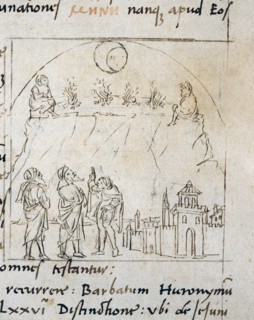 unationes nanq apud Eos
omnes testantur:
recurrere: Barbatum Hieronymũ
LXXVI Distinctione: ubi de Ieiuni